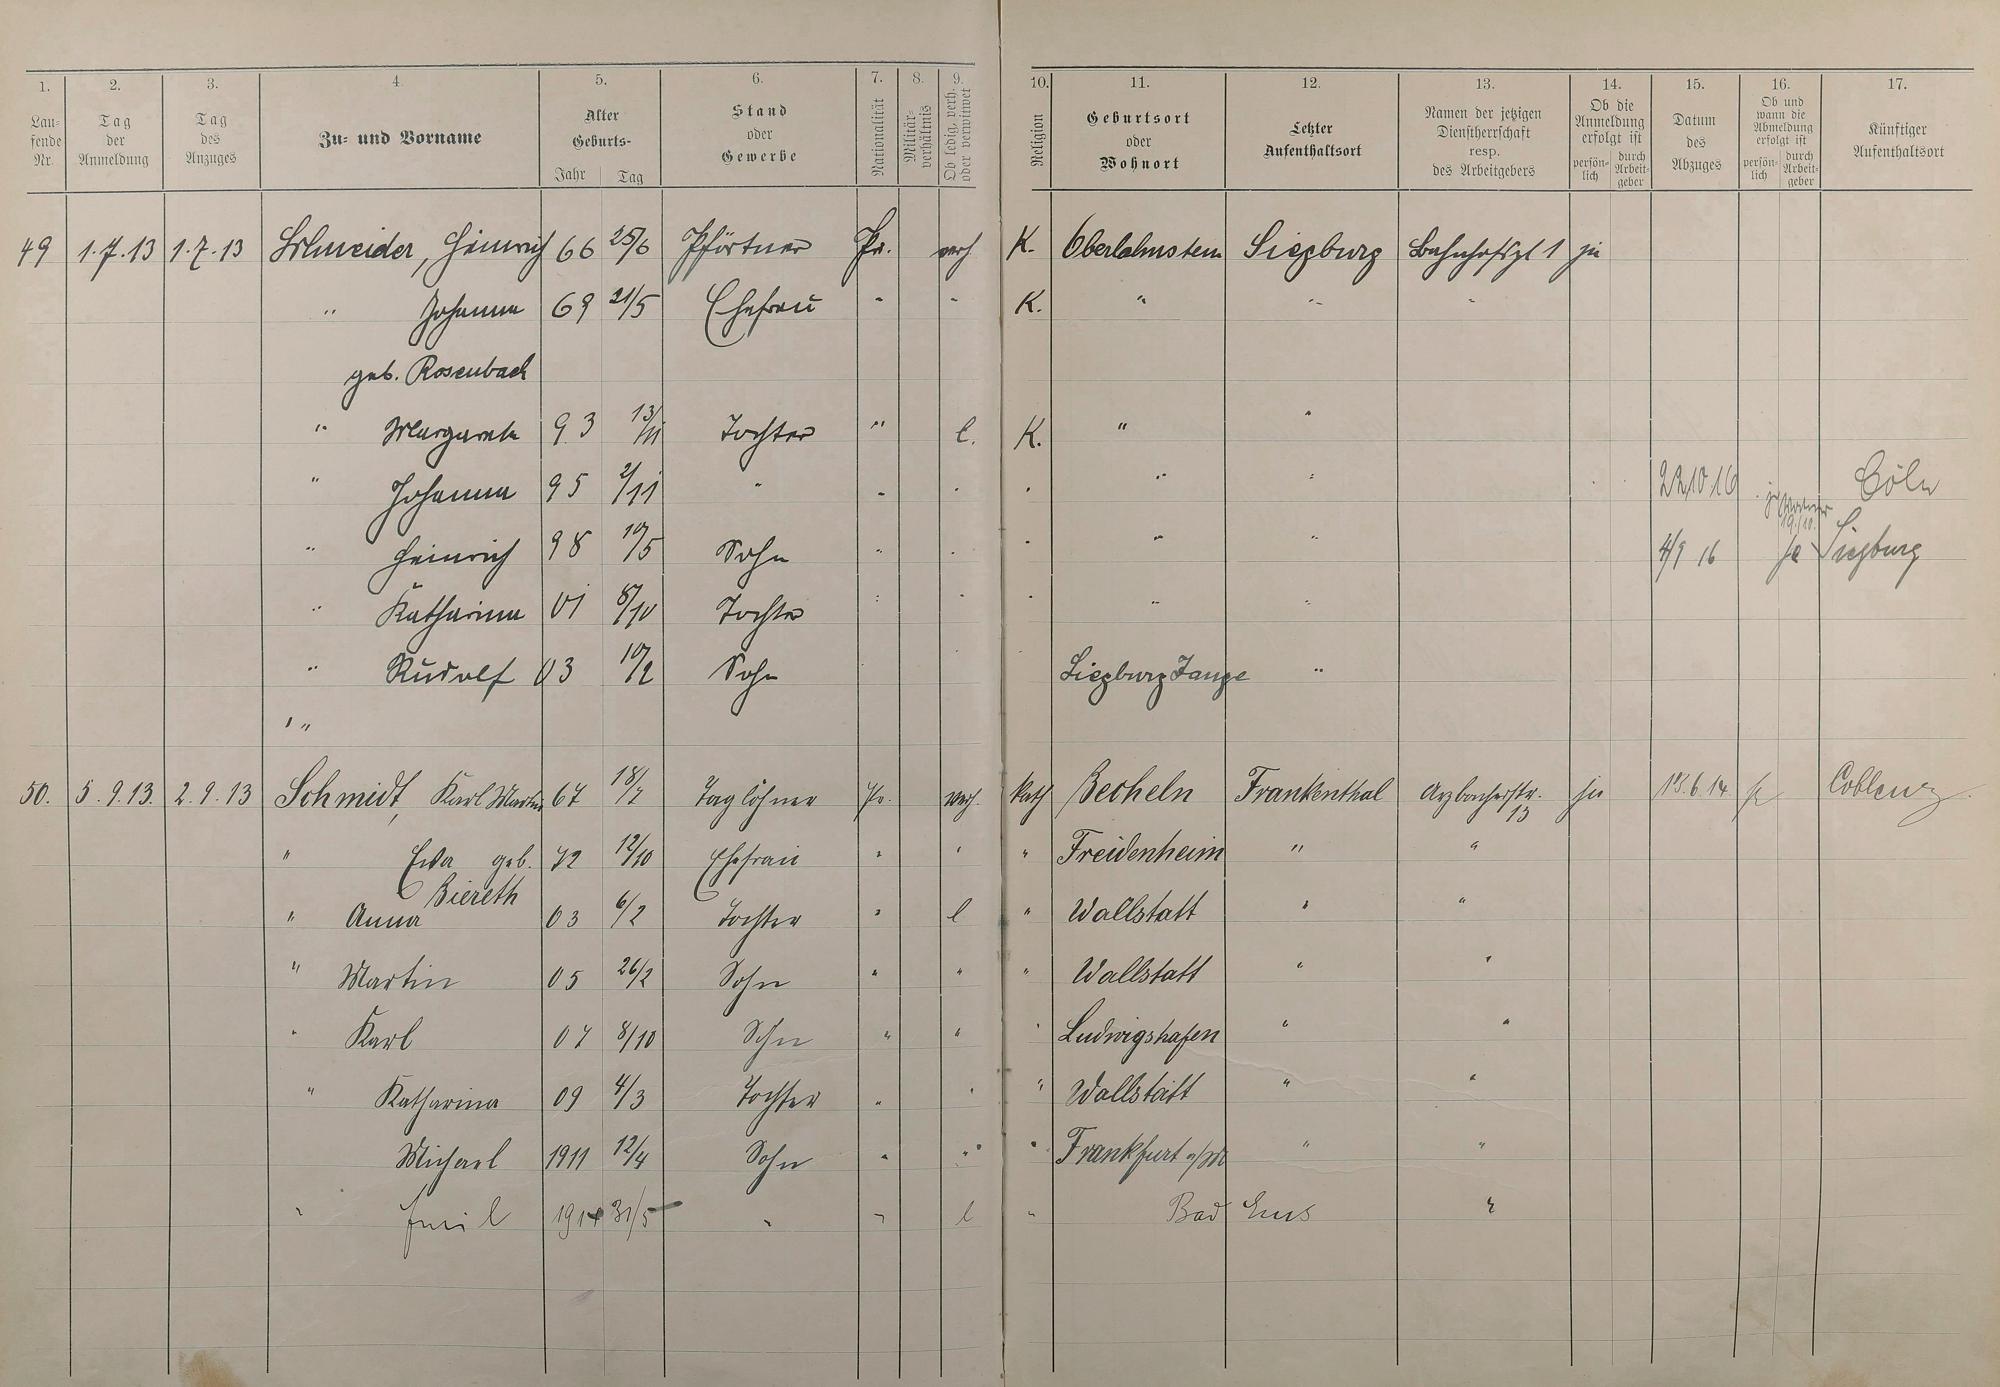 1. 2. 3. 4. 5. 6. 7. 8. 9. 10. 11. 12. 13. 14. 15. 16. 17.
Lau-fende Nr. Tag der Anmeldung Tag des Anzuges Zu- und Vorname Alter Geburts- Jahr Tag Stand oder Gewerbe Nationalität Militär-verhältnis Ob ledig, verh. oder verwitwet Religion Geburtsort oder Wohnort Letzter Aufenthaltsort Namen der jetzigen Dienstherrschaft resp. des Arbeitgebers Ob die Anmeldung erfolgt ist persön-lich durch Arbeit-geber Datum des Abzuges Ob und wann die Abmeldung erfolgt ist persön-lich durch Arbeit-geber Künftiger Aufenthaltsort
49 1.7.13 1.7.13 Schneider, Heinrich 66 25/6 Pförtner Pr. verh. K. Oberlahnstein Siegburg Bahnhofspl 1 ja
" Johanna 69 21/5 Ehefrau " " K. " " "
geb. Rosenbach
" Margareta 93 13/11 Tochter " l. K. " "
" Johanna 95 2/11 " " " " " " 22.10.16 ja Cöln
19./10.
" Heinrich 98 10/5 Sohn " " " " " 4/9 16 ja Siegburg
" Katharina 01 8/10 Tochter " " " " "
" Rudolf 03 10/2 Sohn Siegburg Zange "
" "
50. 5.9.13. 2.9.13 Schmidt, Karl Martin 67 18/7 Taglöhner Pr. verh. kath Becheln Frankenthal Arzbacherstr. 13 ja 15.6.14. ja Coblenz
" Eva geb. 72 12/10 Ehefrau " " " Freidenheim " "
Biereth
" Anna 03 6/2 Tochter " l " Wallstatt " "
" Martin 05 26/2 Sohn " " " Wallstatt " "
" Karl 07 8/10 Sohn " " " Ludwigshafen " "
" Katharina 09 4/3 Tochter " " " Wallstatt " "
Michael 1911 12/4 Sohn " " " Frankfurt a/M " "
" Emil 1914 31/5 " " l " Bad Ems "